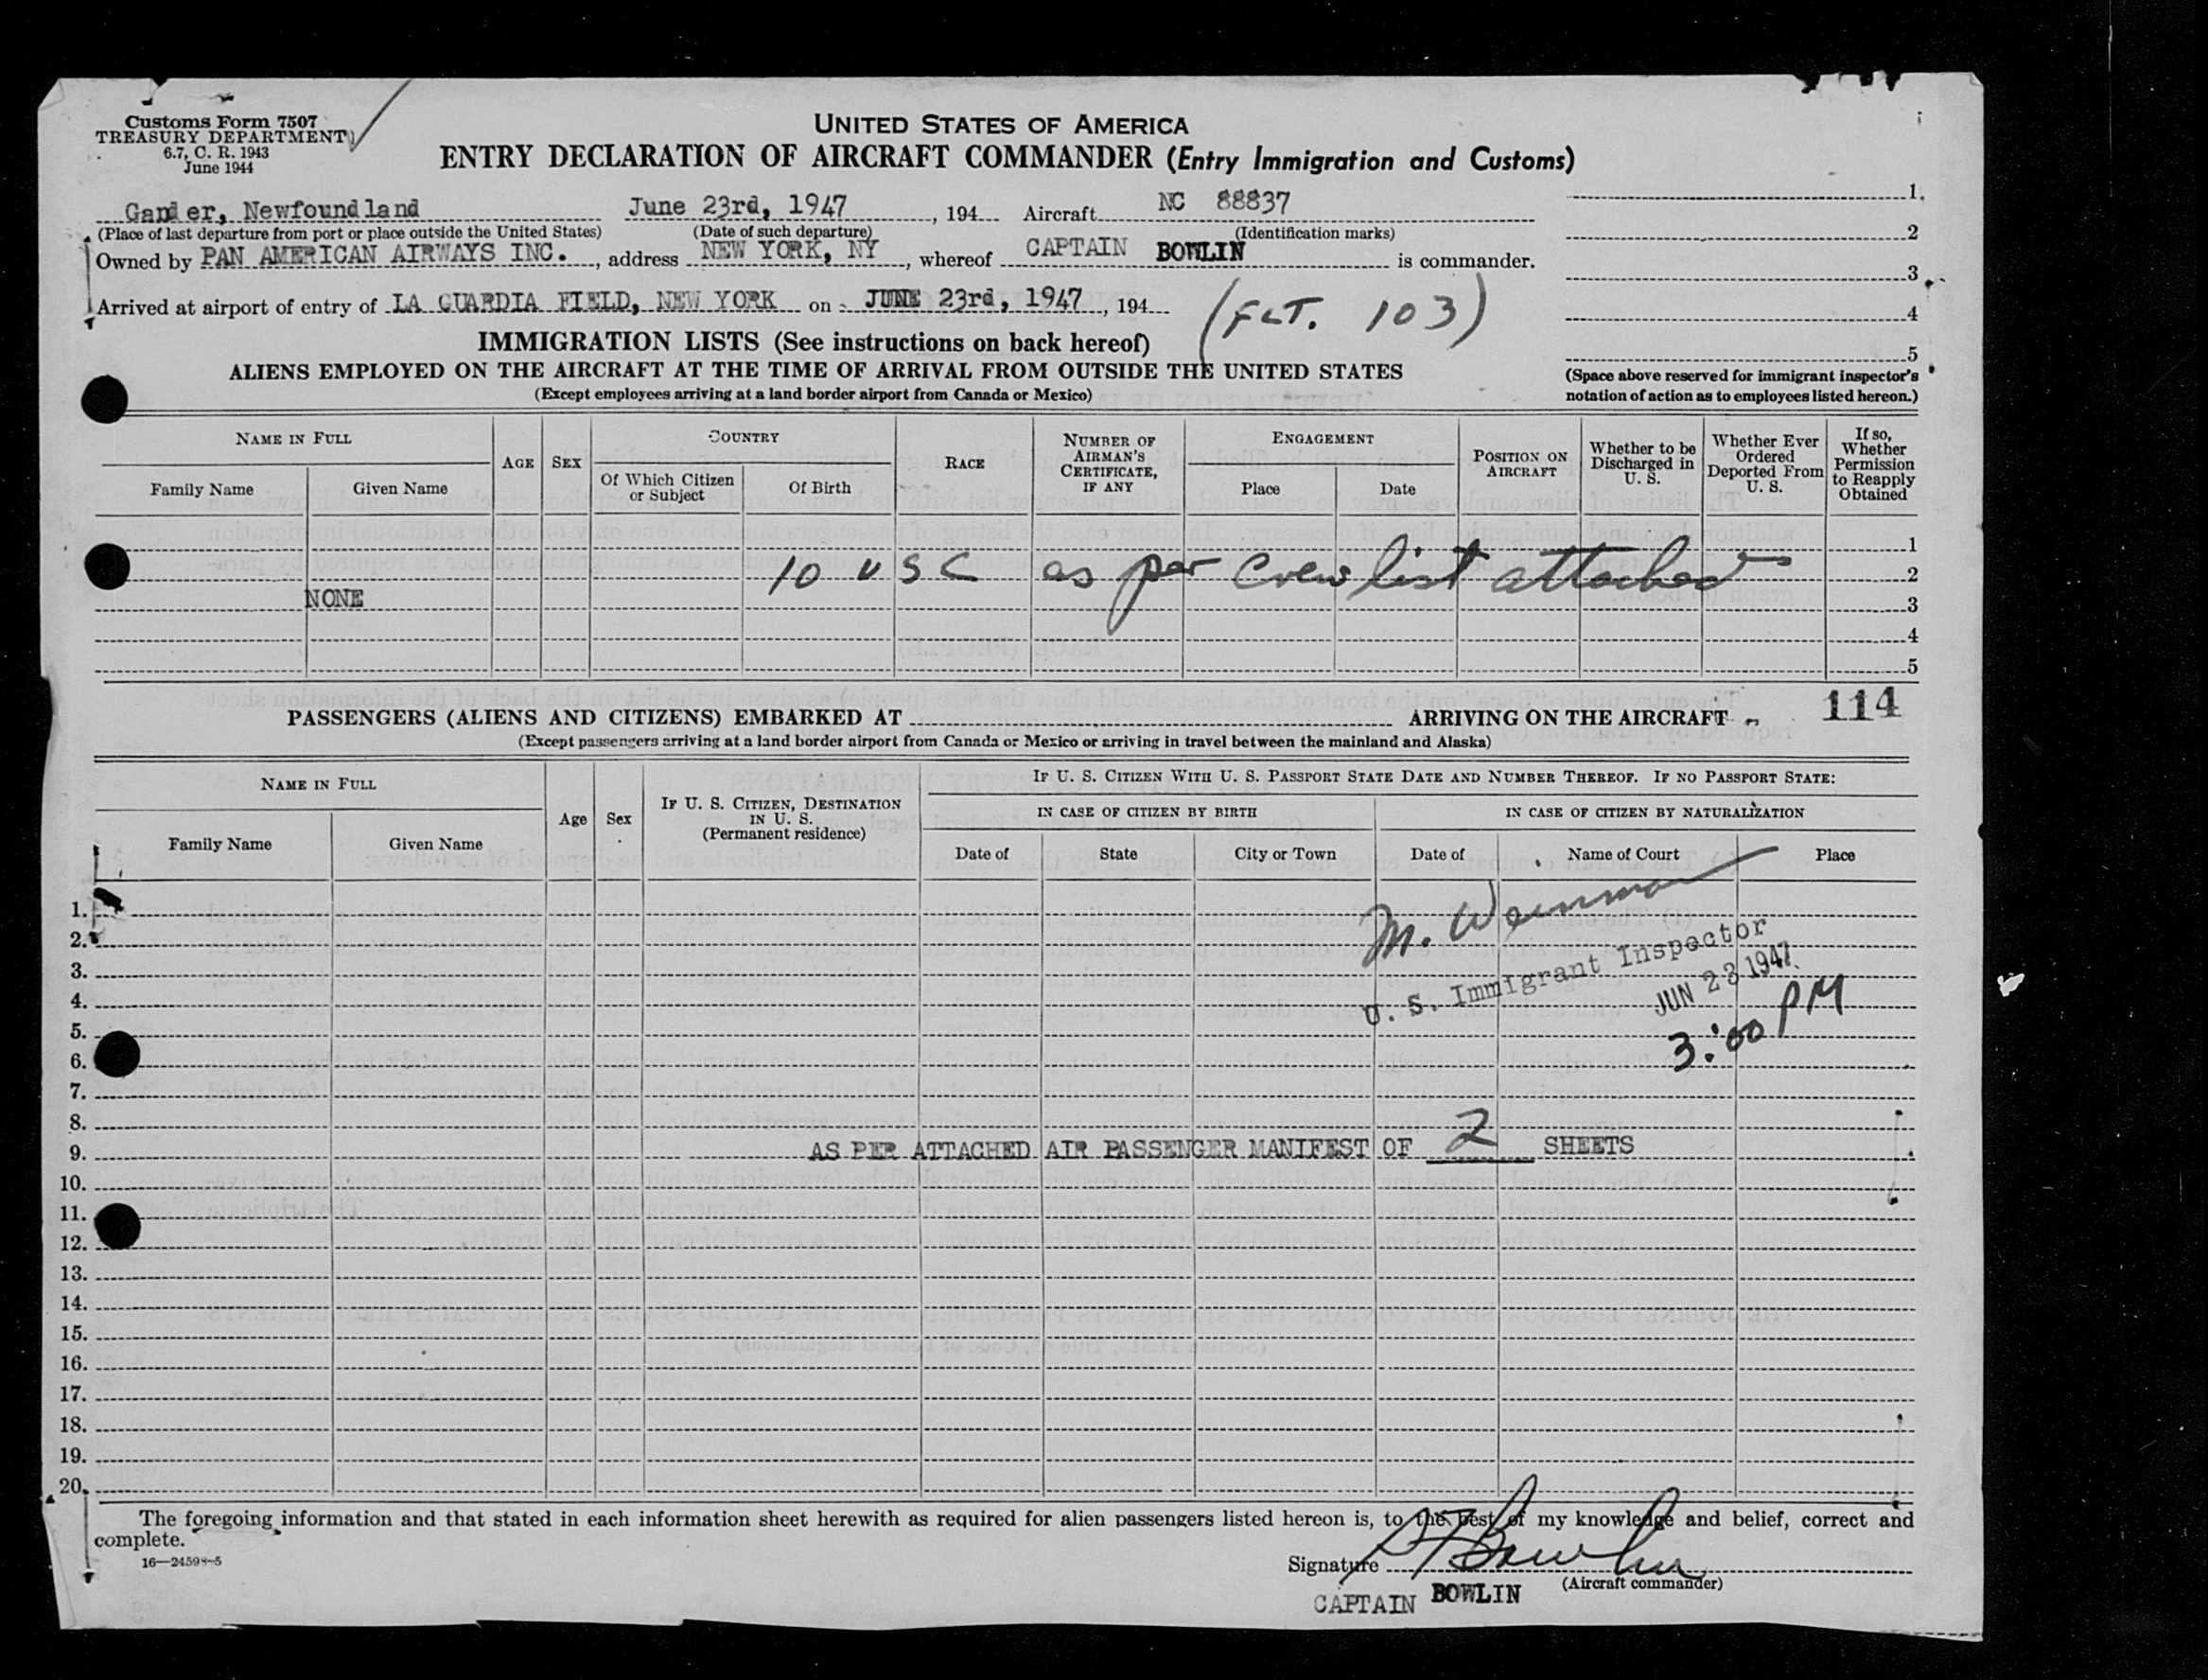 Customs Form 7507
TREASURY DEPARTMENT
6.7, C. R. 1943
June 1944
UNITED STATES OF AMERICA
ENTRY DECLARATION OF AIRCRAFT COMMANDER (Entry Immigration and Customs)
Gander, Newfoundland June 23rd, 1947, 194 Aircraft NC 88837
(Place of last departure from port or place outside the United States) (Date of such departure) (Identification marks)
Owned by PAN AMERICAN AIRWAYS INC., address NEW YORK, NY, whereof CAPTAIN BOWLIN is commander.
Arrived at airport of entry of LA GUARDIA FIELD, NEW YORK on JUNE 23rd, 1947, 194
(FLT. 103)
1.
2
3
4
5
(Space above reserved for immigrant inspector's
notation of action as to employees listed hereon.)
IMMIGRATION LISTS (See instructions on back hereof)
ALIENS EMPLOYED ON THE AIRCRAFT AT THE TIME OF ARRIVAL FROM OUTSIDE THE UNITED STATES
(Except employees arriving at a land border airport from Canada or Mexico)
NAME IN FULL
Family Name
Given Name
AGE
SEX
COUNTRY
Of Which Citizen
or Subject
Of Birth
RACE
NUMBER OF
AIRMAN'S
CERTIFICATE,
IF ANY
ENGAGEMENT
Place
Date
POSITION ON
AIRCRAFT
Whether to be
Discharged in
U. S.
Whether Ever
Ordered
Deported From
U. S.
If so,
Whether
Permission
to Reapply
Obtained
1
10 USC as per Crew list attached
2
NONE
3
4
5
PASSENGERS (ALIENS AND CITIZENS) EMBARKED AT ARRIVING ON THE AIRCRAFT 114
(Except passengers arriving at a land border airport from Canada or Mexico or arriving in travel between the mainland and Alaska)
NAME IN FULL
Family Name
Given Name
Age
Sex
IF U. S. CITIZEN, DESTINATION
IN U. S.
(Permanent residence)
IF U. S. CITIZEN WITH U. S. PASSPORT STATE DATE AND NUMBER THEREOF. IF NO PASSPORT STATE:
IN CASE OF CITIZEN BY BIRTH
Date of
State
City or Town
IN CASE OF CITIZEN BY NATURALIZATION
Date of
Name of Court
Place
1.
M. Weinman
2.
U. S. Immigrant Inspector
3.
JUN 23 1947
4.
3:00 PM
5.
6.
7.
8.
9. AS PER ATTACHED AIR PASSENGER MANIFEST OF 2 SHEETS
10.
11.
12.
13.
14.
15.
16.
17.
18.
19.
20.
The foregoing information and that stated in each information sheet herewith as required for alien passengers listed hereon is, to the best of my knowledge and belief, correct and
complete.
16—24598-5
Signature Bowlin
(Aircraft commander)
CAPTAIN BOWLIN